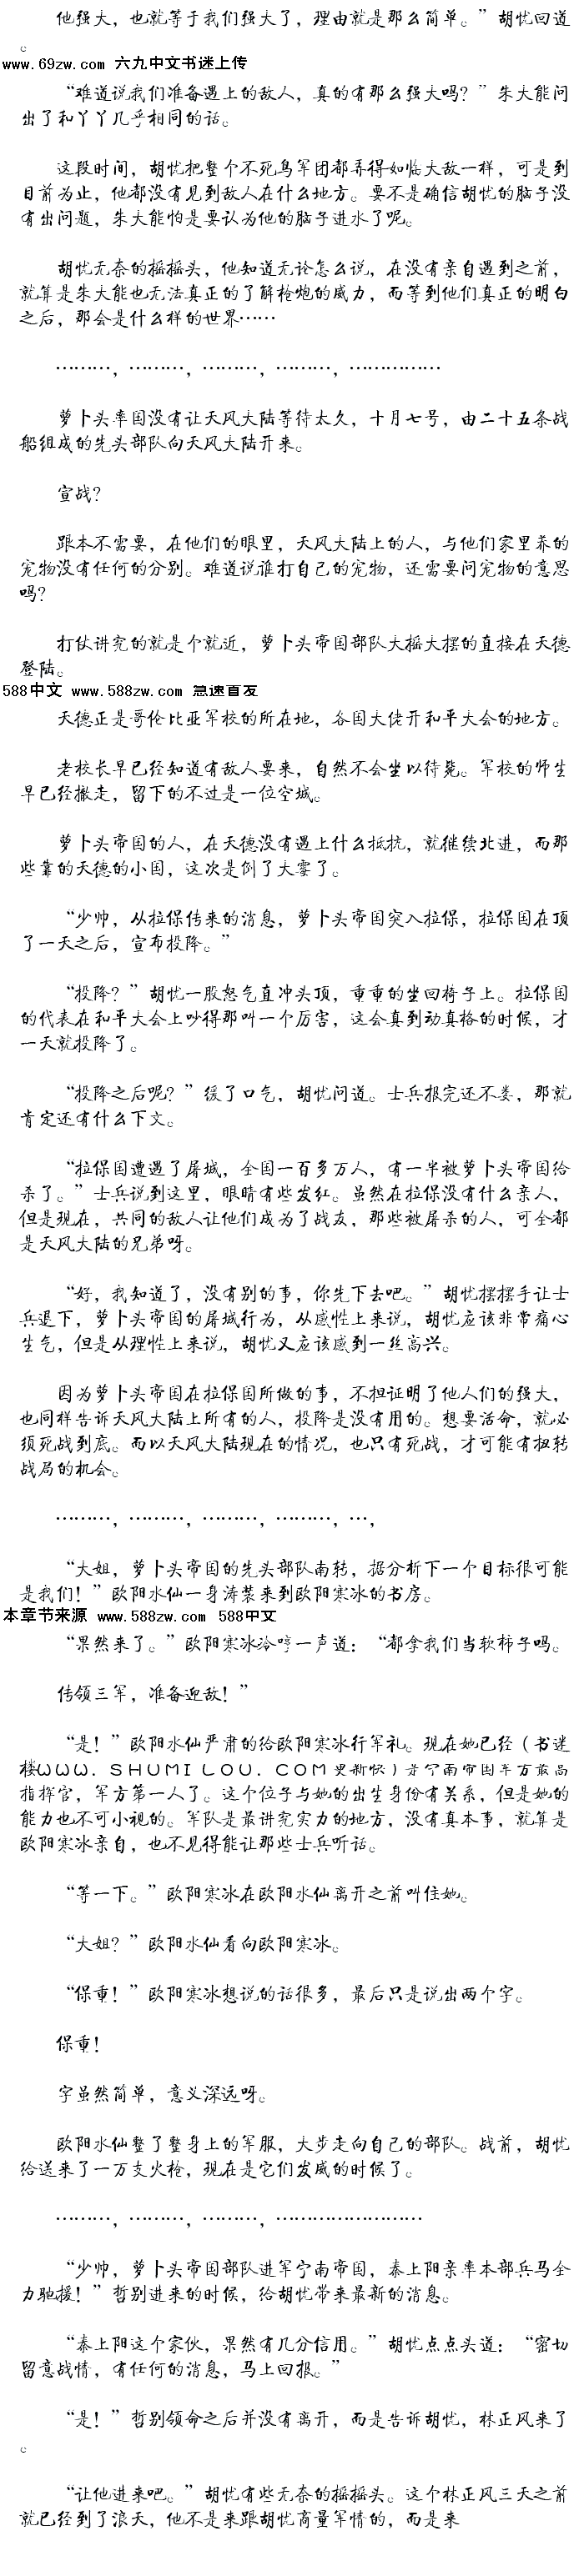 他强大，也就等于我们强大了，理由就是那么简单。”胡忧回道
。
www.69zw.com 六九中文书迷上传
“难道说我们准备遇上的敌人，真的有那么强大吗？”朱大能问
出了和丫丫几乎相同的话。
这段时间，胡忧把整个不死鸟军团都弄得如临大敌一样，可是到
目前为止，他都没有见到敌人在什么地方。要不是确信胡忧的脑子没
有出问题，朱大能怕是要认为他的脑子进水了呢。
胡忧无奈的摇摇头，他知道无论怎么说，在没有亲自遇到之前，
就算是朱大能也无法真正的了解枪炮的威力，而等到他们真正的明白
之后，那会是什么样的世界……
………，………，………，………，……………
萝卜头率国没有让天风大陆等待太久，十月七号，由二十五条战
船组成的先头部队向天风大陆开来。
宣战？
跟本不需要，在他们的眼里，天风大陆上的人，与他们家里养的
宠物没有任何的分别。难道说谁打自己的宠物，还需要问宠物的意思
吗？
打仗讲究的就是个就近，萝卜头帝国部队大摇大摆的直接在天德
登陆。
588中文 www.588zw.com 急速首发
天德正是哥伦比亚军校的所在地，各国大佬开和平大会的地方。
老校长早已经知道有敌人要来，自然不会坐以待毙。军校的师生
早已经撤走，留下的不过是一位空城。
萝卜头帝国的人，在天德没有遇上什么抵抗，就继续北进，而那
些靠的天德的小国，这次是倒了大霉了。
“少帅，从拉保传来的消息，萝卜头帝国突入拉保，拉保国在顶
了一天之后，宣布投降。”
“投降？”胡忧一股怒气直冲头顶，重重的坐回椅子上。拉保国
的代表在和平大会上吵得那叫一个厉害，这会真到动真格的时候，才
一天就投降了。
“投降之后呢？”缓了口气，胡忧问道。士兵报完还不娄，那就
肯定还有什么下文。
“拉保国遭遇了屠城，全国一百多万人，有一半被萝卜头帝国给
杀了。”士兵说到这里，眼睛有些发红。虽然在拉保没有什么亲人，
但是现在，共同的敌人让他们成为了战友，那些被屠杀的人，可全都
是天风大陆的兄弟呀。
“好，我知道了，没有别的事，你先下去吧。”胡忧摆摆手让士
兵退下，萝卜头帝国的屠城行为，从感性上来说，胡忧应该非常痛心
生气，但是从理性上来说，胡忧又应该感到一丝高兴。
因为萝卜头帝国在拉保国所做的事，不担证明了他人们的强大，
也同样告诉天风大陆上所有的人，投降是没有用的。想要活命，就必
须死战到底。而以天风大陆现在的情况，也只有死战，才可能有扭转
战局的机会。
………，………，………，………，…，
“大姐，萝卜头帝国的先头部队南转，据分析下一个目标很可能
是我们！”欧阳水仙一身涛装来到欧阳寒冰的书房。
本章节来源 www.588zw.com 588中文
“果然来了。”欧阳寒冰冷哼一声道：“都拿我们当软柿子吗。
传领三军，准备迎敌！”
“是！”欧阳水仙严肃的给欧阳寒冰行军礼。现在她已经（书迷
楼WWW．SHUMILOU．COM更新快）是宁南帝国军方最高
指挥官，军方第一人了。这个位子与她的出生身份有关系，但是她的
能力也不可小视的。军队是最讲究实力的地方，没有真本事，就算是
欧阳寒冰亲自，也不见得能让那些士兵听话。
“等一下。”欧阳寒冰在欧阳水仙离开之前叫住她。
“大姐？”欧阳水仙看向欧阳寒冰。
“保重！”欧阳寒冰想说的话很多，最后只是说出两个字。
保重！
字虽然简单，意义深远呀。
欧阳水仙整了整身上的军服，大步走向自己的部队。战前，胡忧
给送来了一万支火枪，现在是它们发威的时候了。
………，………，………，……………………
“少帅，萝卜头帝国部队进军宁南帝国，泰上阳亲率本部兵马全
力驰援！”哲别进来的时候，给胡忧带来最新的消息。
“泰上阳这个家伙，果然有几分信用。”胡忧点点头道：“密切
留意战情，有任何的消息，马上回报。”
“是！”哲别领命之后并没有离开，而是告诉胡忧，林正风来了
。
“让他进来吧。”胡忧有些无奈的摇摇头。这个林正风三天之前
就已经到了浪天，他不是来跟胡忧商量军情的，而是来